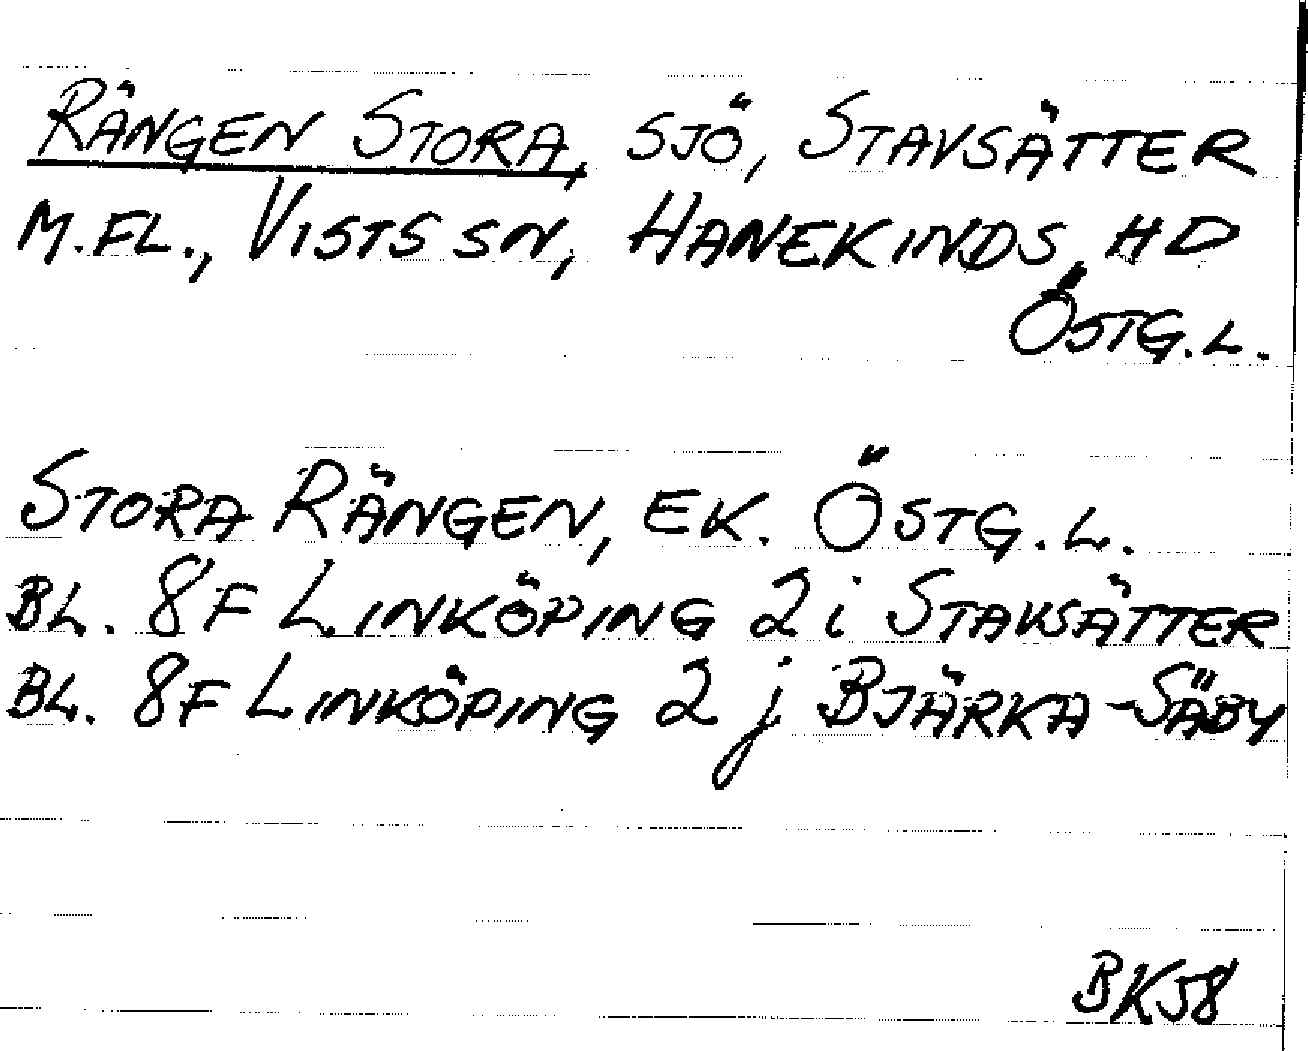 RÄNGEN STORA, SJÖ, STAVSÄTTER
M.FL., VISTS SN, HANEKINDS HD
ÖSTG.L.
STORA RÄNGEN, EK. ÖSTG.L.
BL. 8F LINKÖPING 2i STAVSÄTTER
BL. 8F LINKÖPING 2j BJÄRKA-SÄBY
BK58